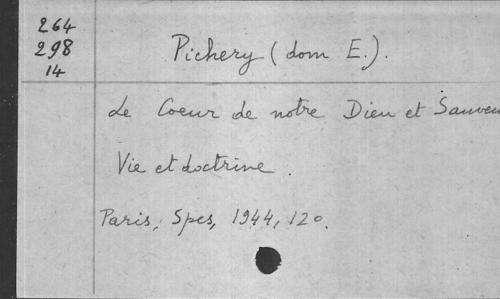 264
298
14
Pichery (dom E.).
Le Coeur de notre Dieu et Sauveu
Vie et doctrine.
Paris, Spes, 1944, 12o.